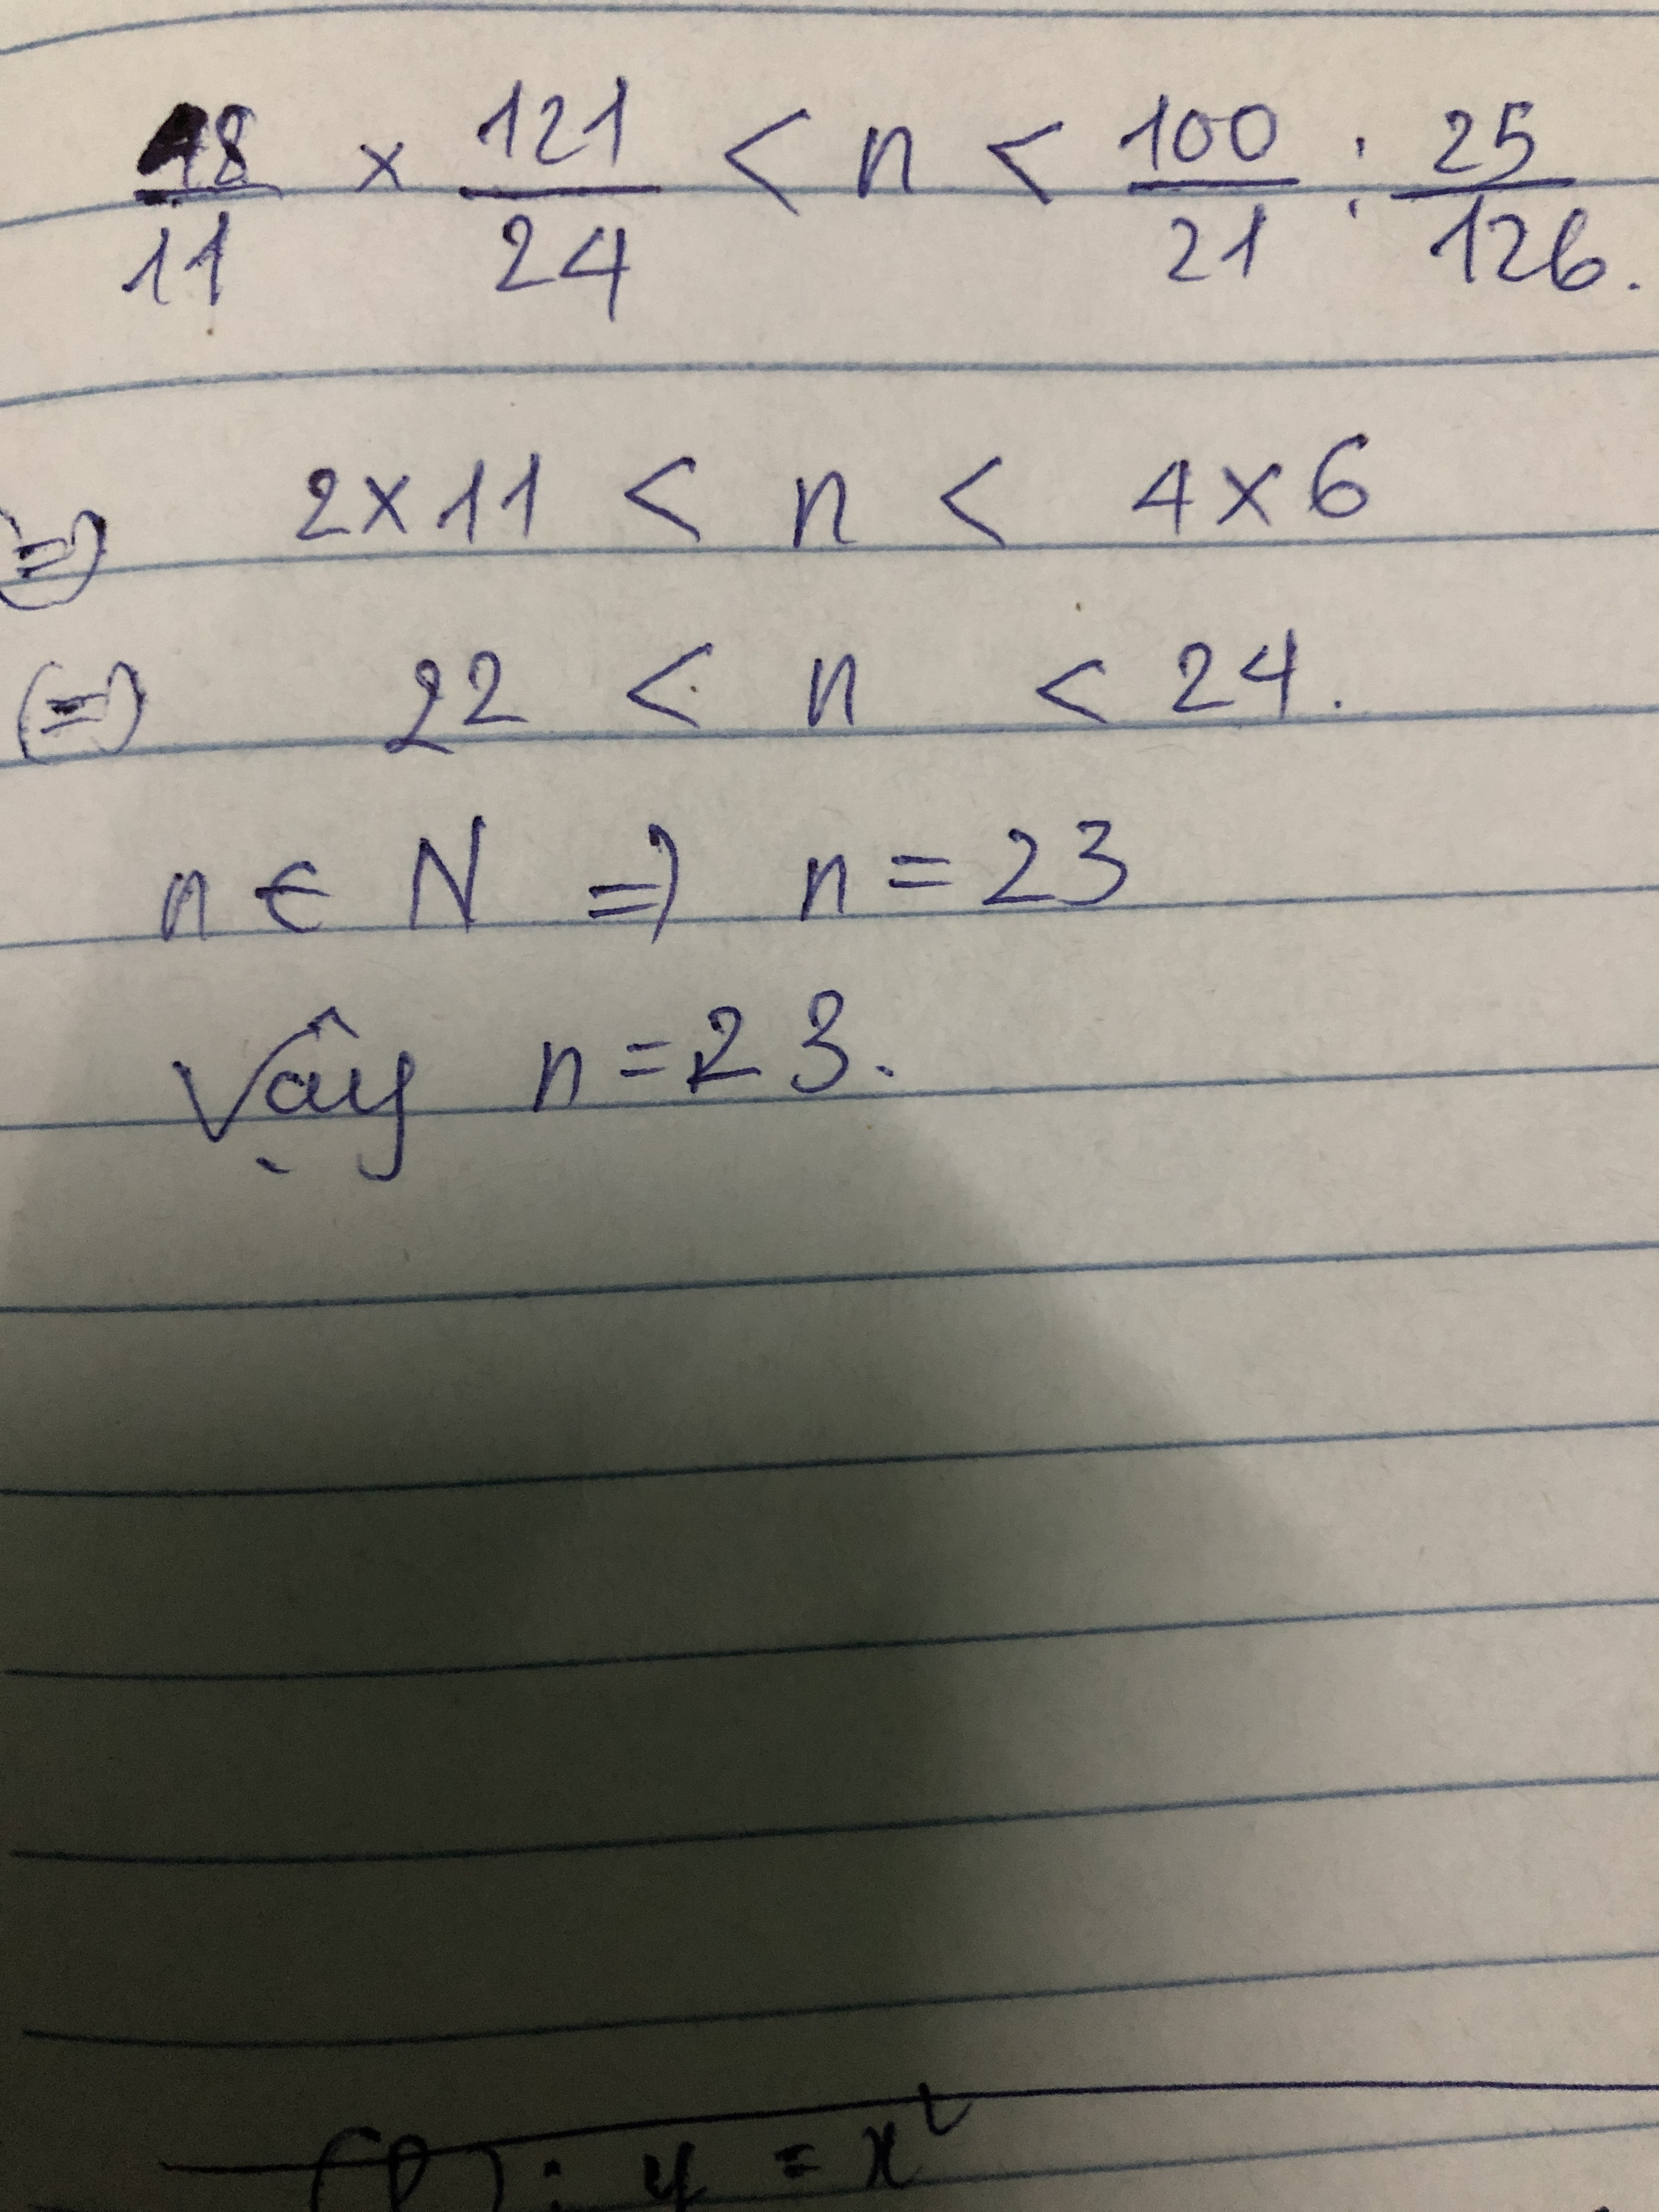 48/11 × 121/24 < n < 100/21 : 25/126.
(=) 2×11 < n < 4×6
(=) 22 < n < 24.
n ∈ N => n = 23
Vậy n = 23.
(P) : y = x²